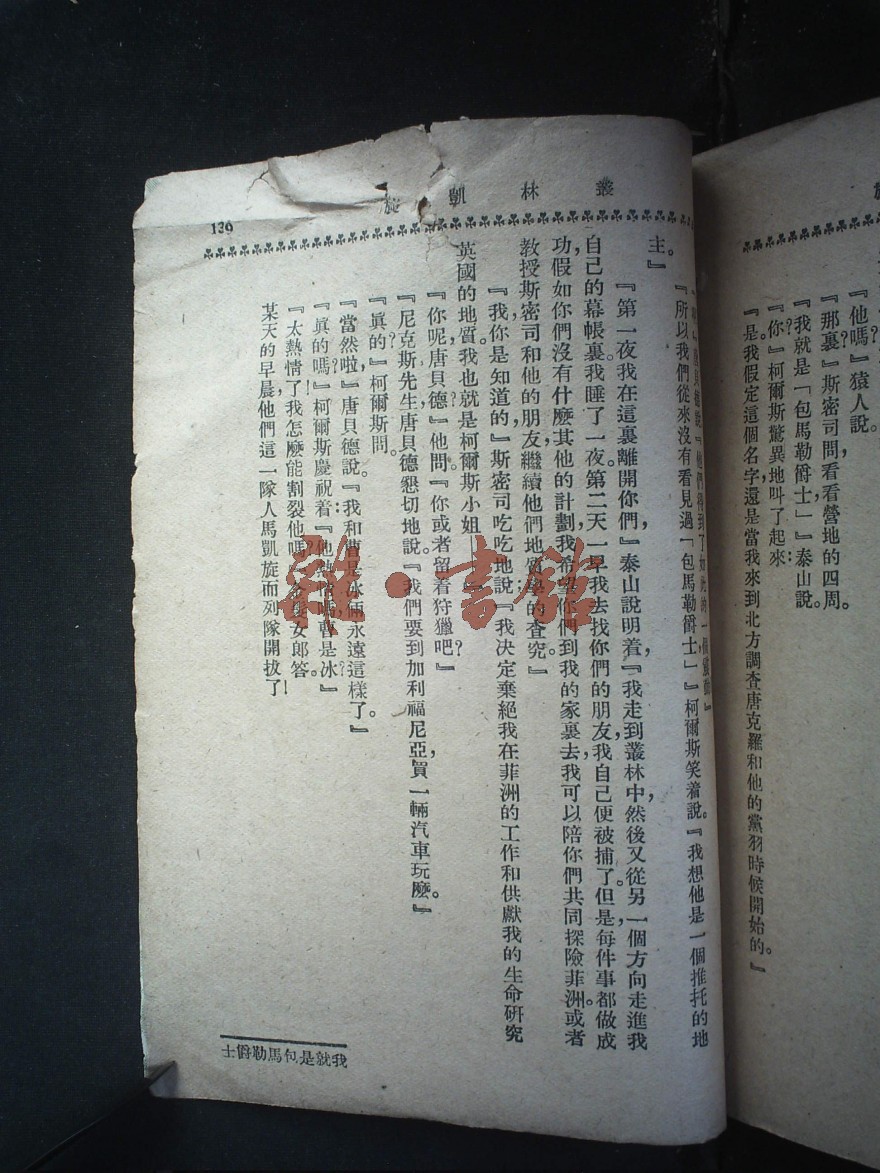 『他嗎?』猿人說。
『那裏?』斯密司問,看看營地的四周。
『我就是「包馬勒爵士」』泰山說。
『你?』柯爾斯驚異地叫了起來:
『是。我假定這個名字,還是當我來到北方調查唐克羅和他的黨羽時候開始的。』
叢林凱旋
他們得到了如此的一個
『所以我們從來沒有看見過「包馬勒爵士」』柯爾斯笑着說。『我想他是一個推托的地
主。』
『第一夜我在這裏離開你們』泰山說明着,『我走到叢林中,然後又從另一個方向走進我
自己的幕帳裏,我睡了一夜。第二天一早我去找你們的朋友,我自己便被捕了。但是,每件事都做成
功,假如你們沒有什麼其他的計劃,我希望你們到我的家裏去,我可以陪你們共同探險菲洲。或者
教授斯密司和他的朋友繼續他們地質學的查究。』
『我,你是知道的』斯密司吃吃地說,『我決定棄絕我在菲洲的工作和供獻我的生命研究
英國的地質。我也就是柯爾斯小姐——』
『你呢,唐貝德?』他問。『你或者留着狩獵吧?』
『尼克斯先生』唐貝德懇切地說。『我們要到加利福尼亞,買一輛汽車玩麽。』
『真的?』柯爾斯問。
『當然啦,』唐貝德說:『我和曹是冰倆永遠這樣了。』
『真的嗎?』柯爾斯慶祝着『他是冰?』
『太熱情了!我怎麽能割裂他嗎?』金髮女郎答。
某天的早晨,他們這一隊人馬凱旋而列隊開拔了!
我就是包馬勒爵士
130
雜·書館